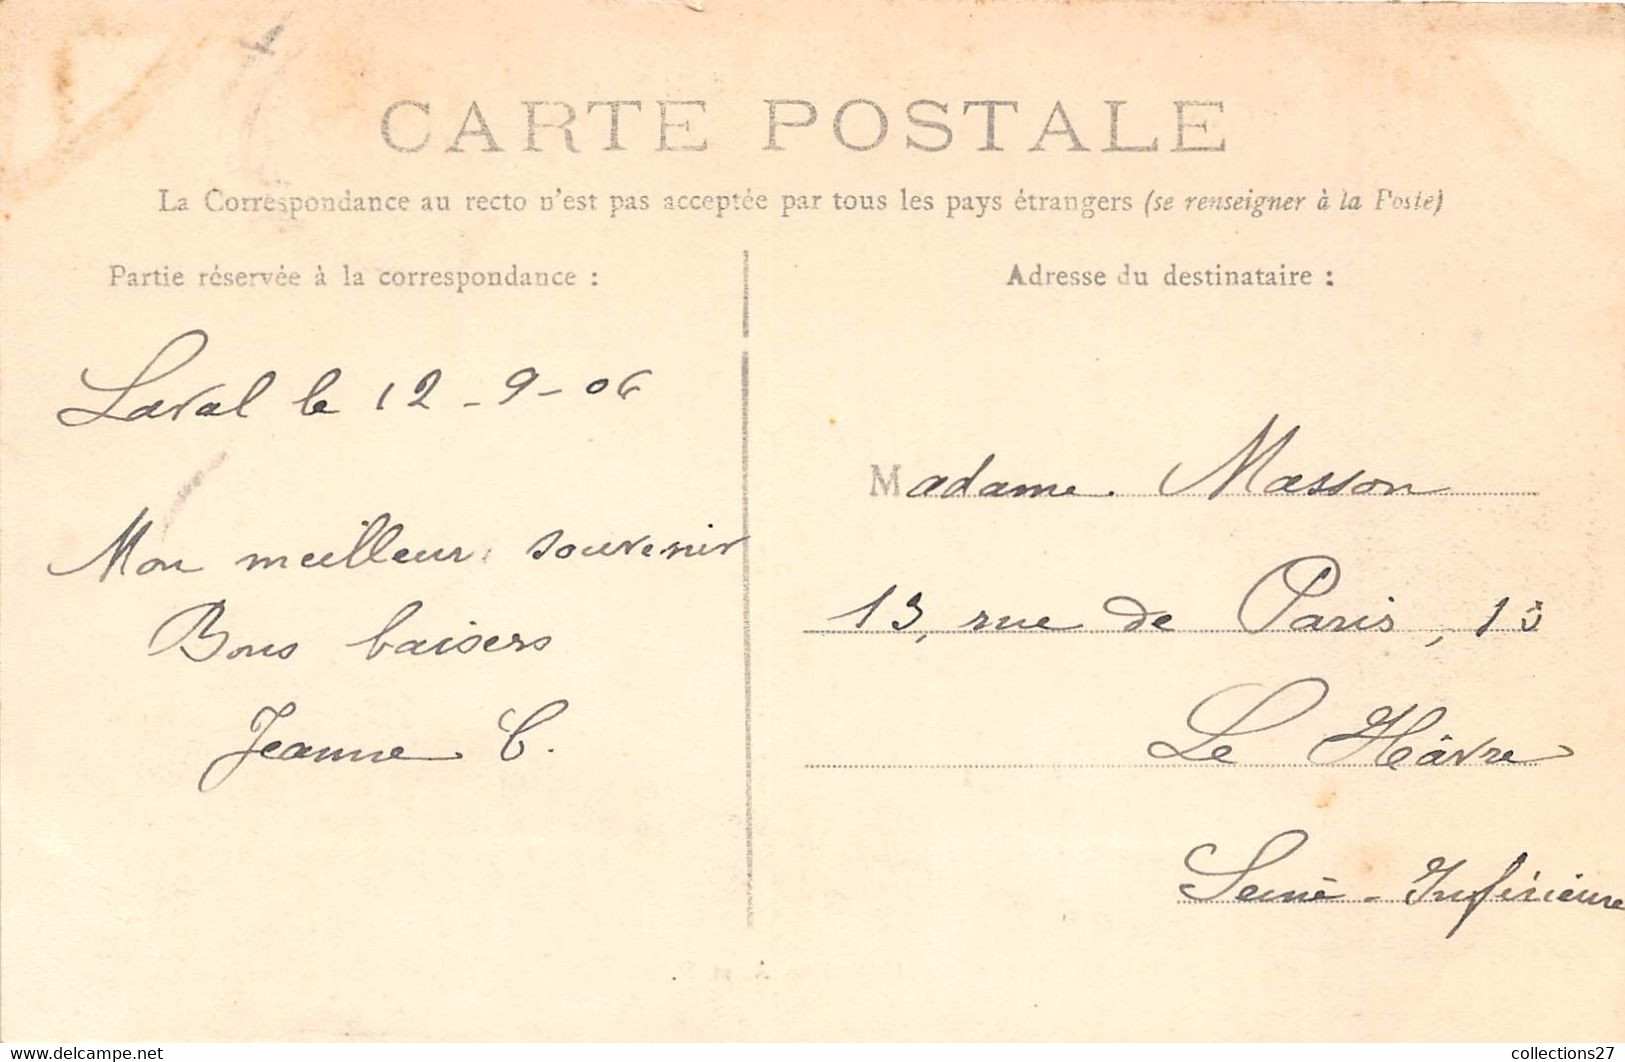 CARTE POSTALE
La Correspondance au recto n'est pas acceptée par tous les pays étrangers (se renseigner à la Poste)
Partie réservée à la correspondance :
Laval le 12 - 9 - 06
Mon meilleur souvenir
Bons baisers
Jeanne C.
Adresse du destinataire :
Madame Masson
13, rue de Paris, 13
Le Hâvre
Seine-Inférieure
www.delcampe.net
collections27